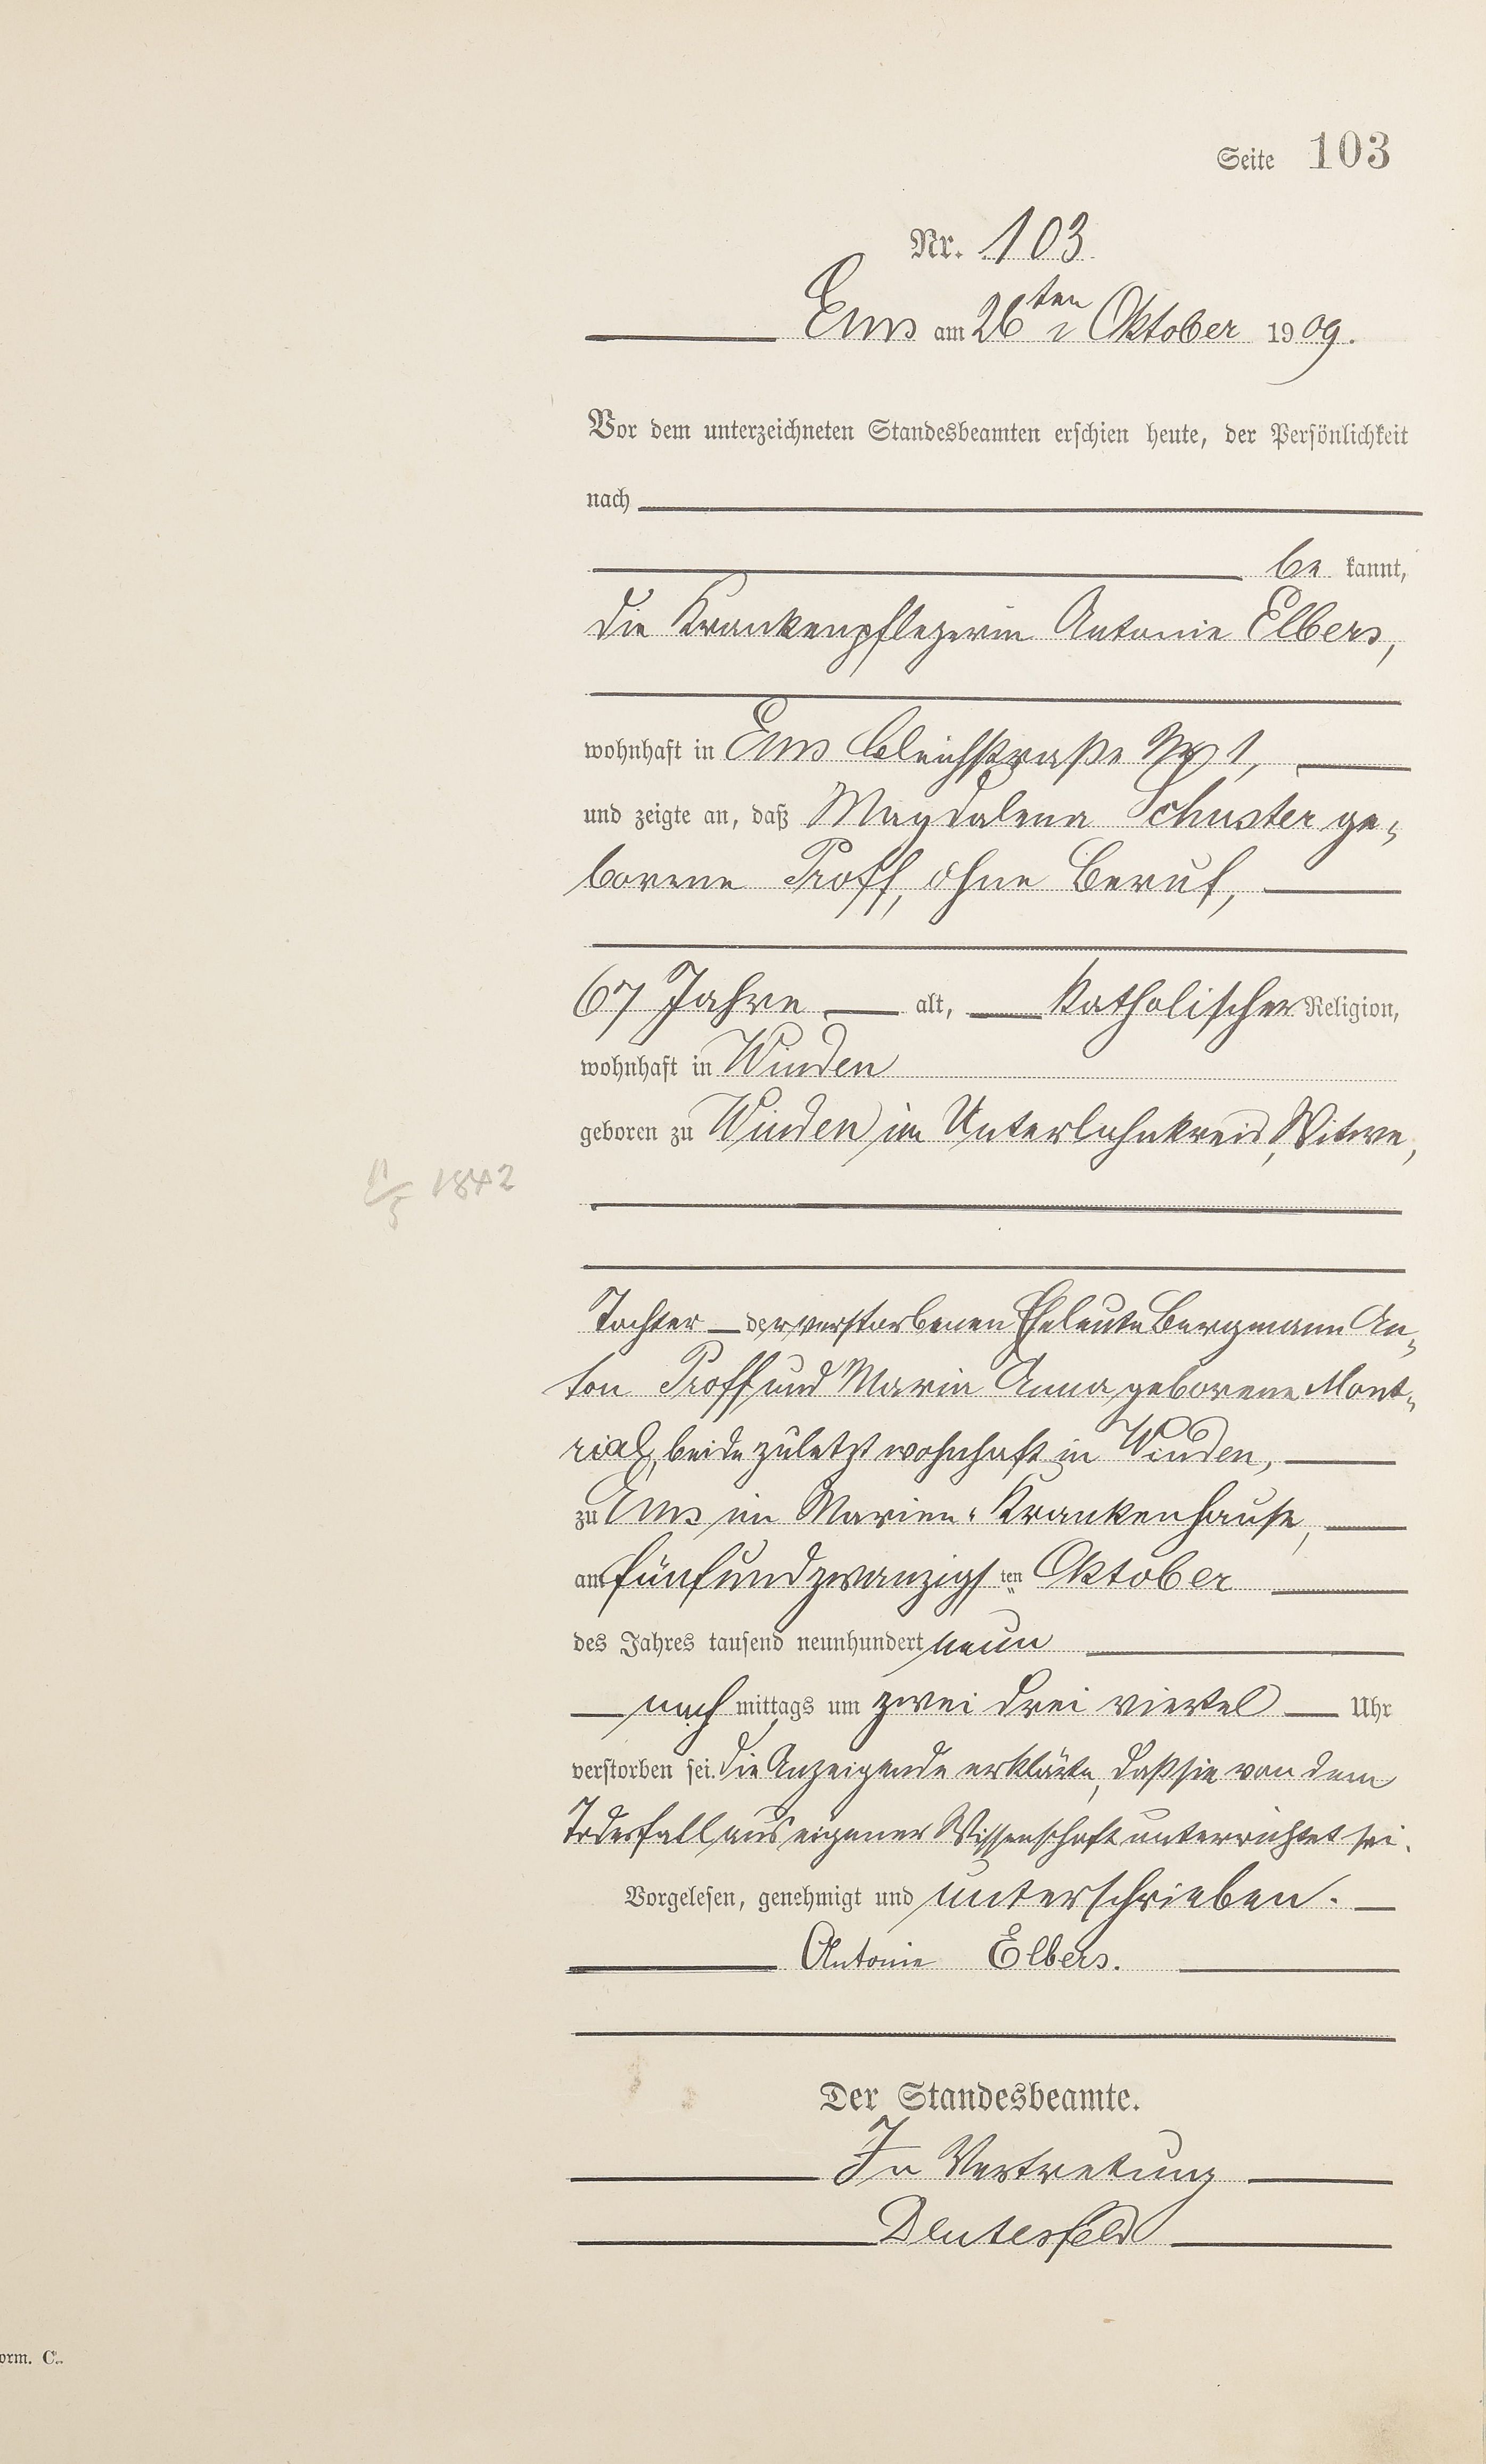 Seite 103
Nr. 103
Ems am 26ten Oktober 1909.
Vor dem unterzeichneten Standesbeamten erschien heute, der Persönlichkeit
nach
be kannt,
die Krankenpflegerin Antonie Elbers,
wohnhaft in Ems Bleichstraße No 1,
und zeigte an, daß Magdalena Schuster ge-
borene Proff, ohne Beruf,
67 Jahre alt, katholischer Religion,
wohnhaft in Winden
geboren zu Winden im Unterlahnkreis, Witwe,
11/5 1842
Tochter der verstorbenen Eheleute Bergmann An-
ton Proff und Maria Anna geborene Mont-
rial, beide zuletzt wohnhaft in Winden,
zu Ems im Marien-Krankenhause,
am fünfundzwanzigsten Oktober
des Jahres tausend neunhundert neun
nach mittags um zwei drei viertel Uhr
verstorben sei. Die Anzeigende erklärte, daß sie von dem
Todesfall aus eigener Wissenschaft unterrichtet sei.
Vorgelesen, genehmigt und unterschrieben.
Antonie Elbers.
Der Standesbeamte.
In Vertretung
orm. C.